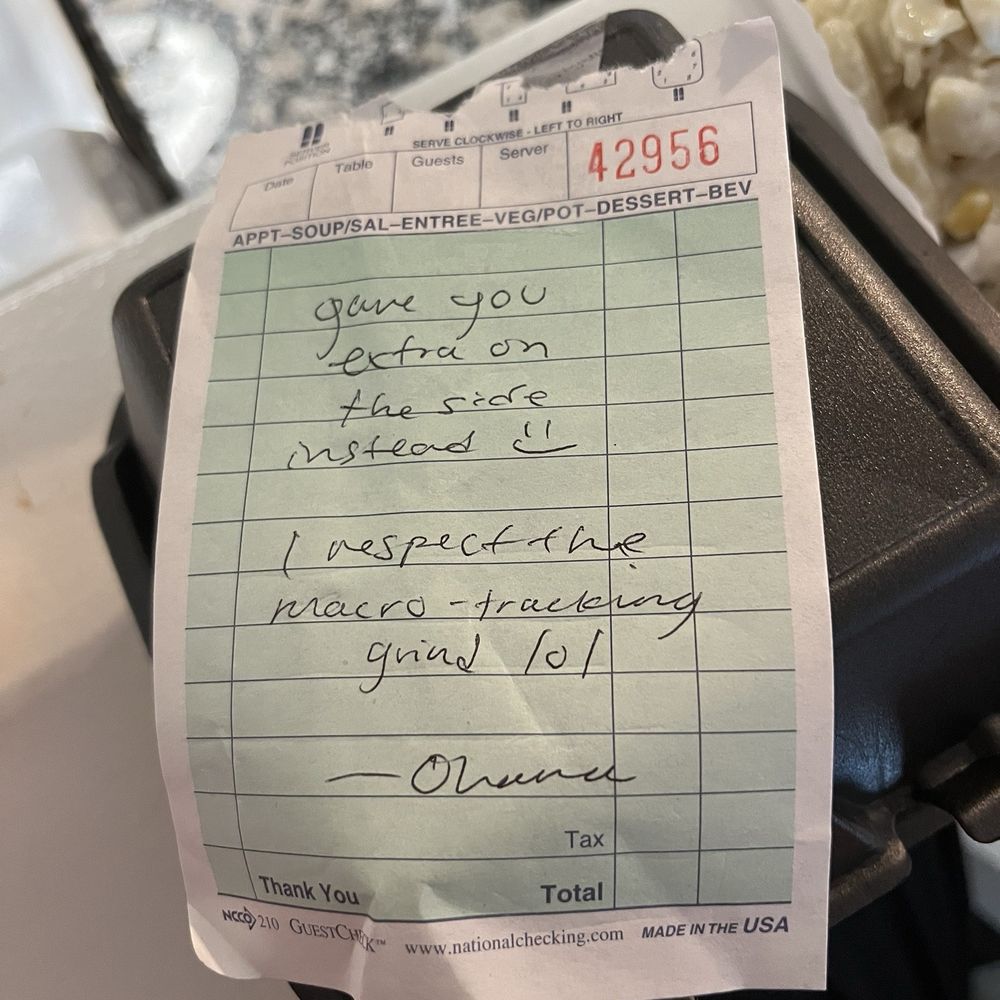 SERVE CLOCKWISE - LEFT TO RIGHT
Date Table Guests Server 42956
APPT–SOUP/SAL–ENTREE–VEG/POT–DESSERT–BEV
gave you
extra on
the side
instead
I respect the
macro-tracking
grind lol
— Ohana
Tax
Thank You Total
NCCO 210 GUESTCHECK™ www.nationalchecking.com MADE IN THE USA